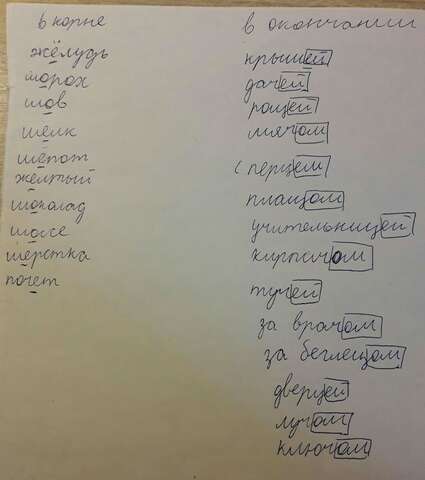 в корне
жёлудь
шорох
шов
шёлк
шёпот
жёлтый
шоколад
шоссе
шёрстка
почет
в окончании
крышей
дачей
рощей
мячом
перцем
плащом
учительницей
кирпичом
тучей
за врачом
за беглецом
дверцей
лучом
ключом